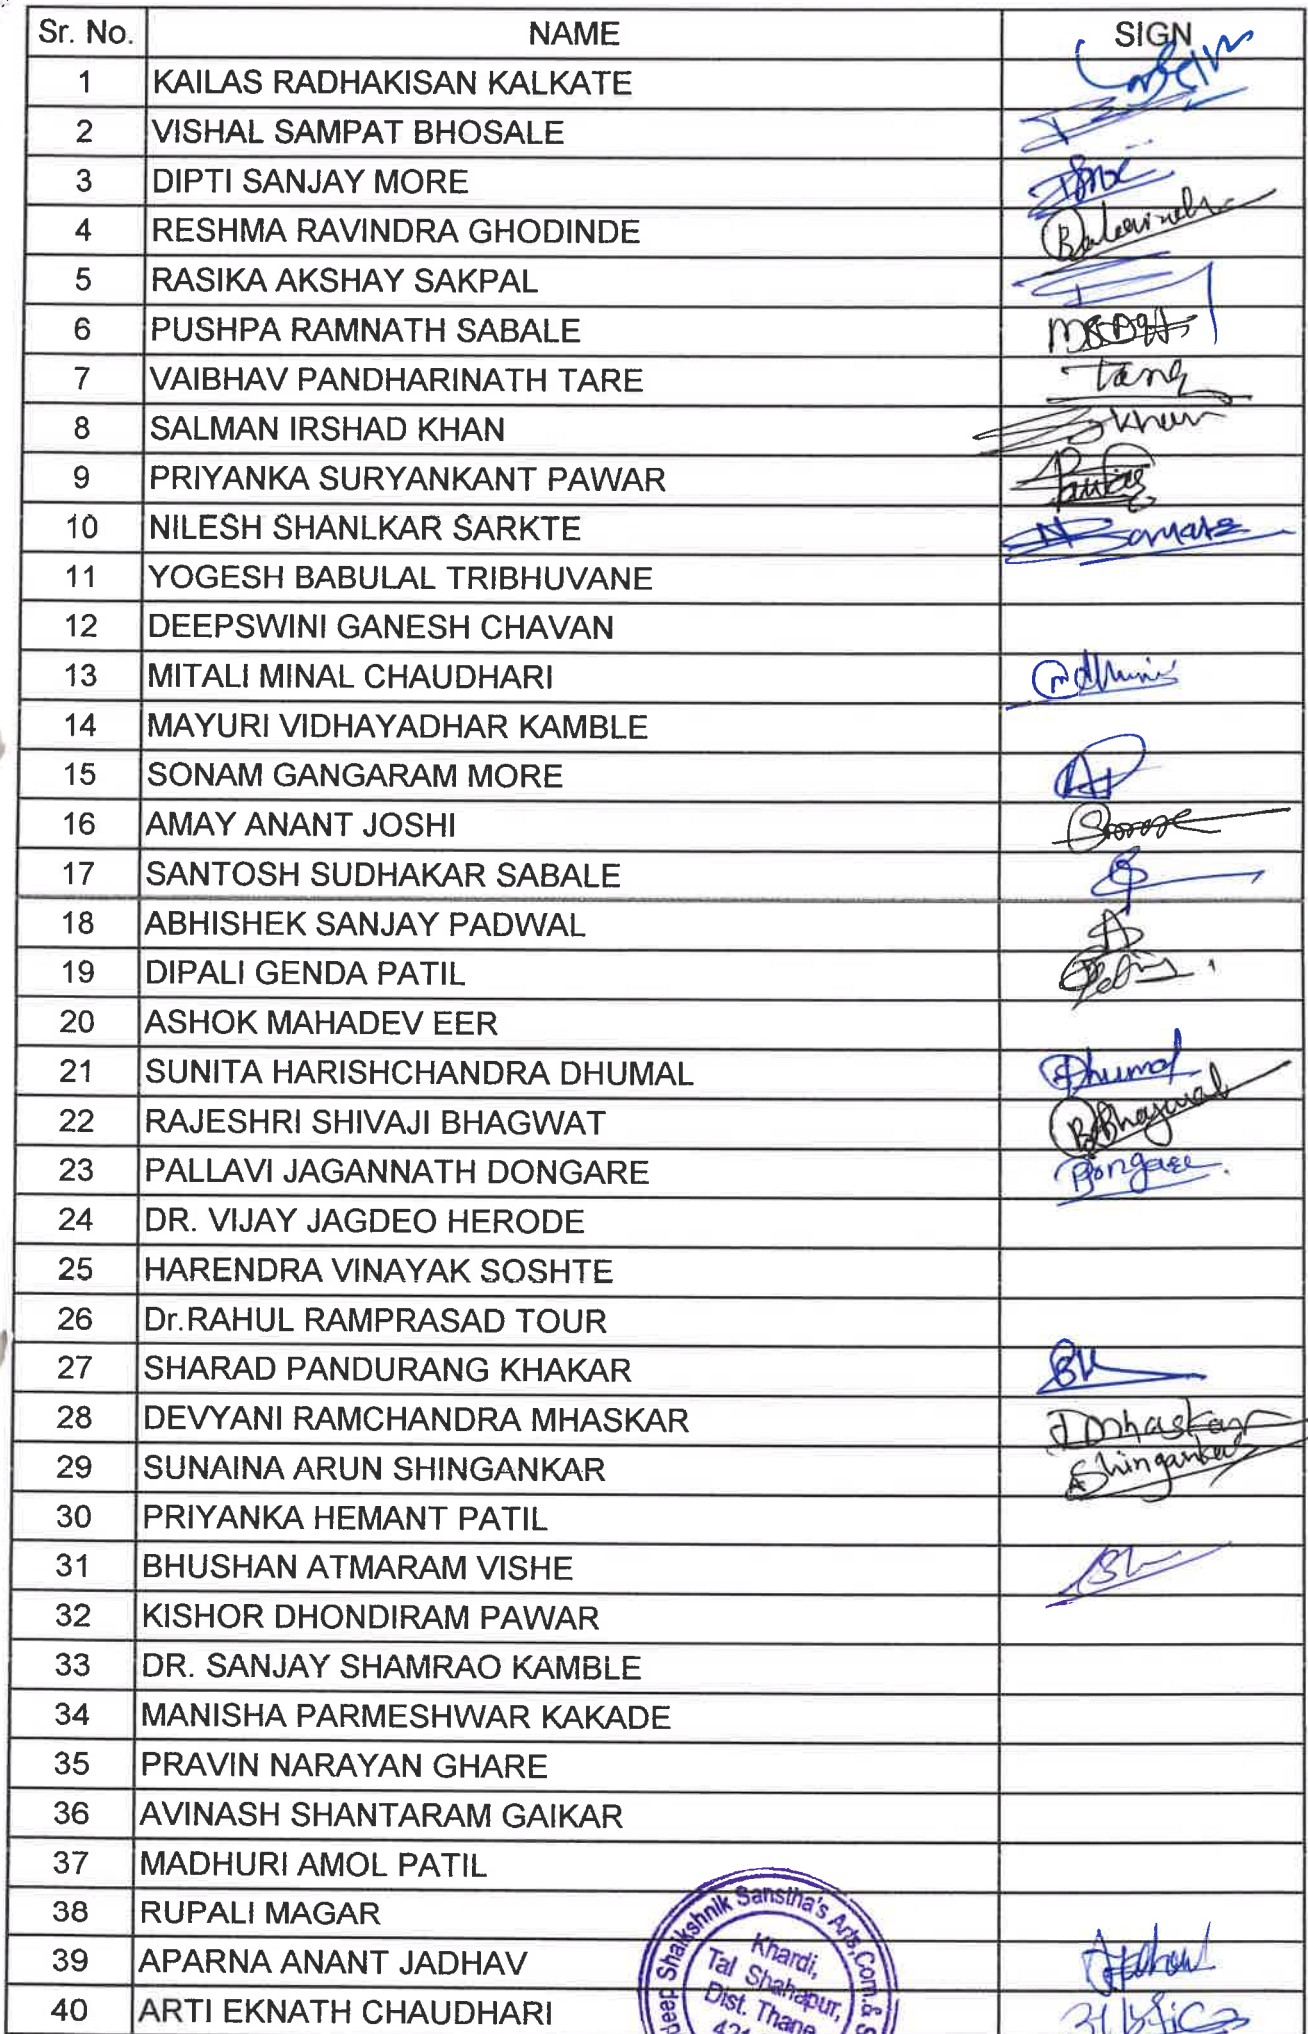 Sr. No. NAME SIGN
1 KAILAS RADHAKISAN KALKATE
2 VISHAL SAMPAT BHOSALE
3 DIPTI SANJAY MORE
4 RESHMA RAVINDRA GHODINDE
5 RASIKA AKSHAY SAKPAL
6 PUSHPA RAMNATH SABALE
7 VAIBHAV PANDHARINATH TARE
8 SALMAN IRSHAD KHAN Khan
9 PRIYANKA SURYANKANT PAWAR
10 NILESH SHANLKAR SARKTE
11 YOGESH BABULAL TRIBHUVANE
12 DEEPSWINI GANESH CHAVAN
13 MITALI MINAL CHAUDHARI
14 MAYURI VIDHAYADHAR KAMBLE
15 SONAM GANGARAM MORE
16 AMAY ANANT JOSHI
17 SANTOSH SUDHAKAR SABALE
18 ABHISHEK SANJAY PADWAL
19 DIPALI GENDA PATIL
20 ASHOK MAHADEV EER
21 SUNITA HARISHCHANDRA DHUMAL Dhumal
22 RAJESHRI SHIVAJI BHAGWAT
23 PALLAVI JAGANNATH DONGARE
24 DR. VIJAY JAGDEO HERODE
25 HARENDRA VINAYAK SOSHTE
26 Dr.RAHUL RAMPRASAD TOUR
27 SHARAD PANDURANG KHAKAR
28 DEVYANI RAMCHANDRA MHASKAR Dmhaskar
29 SUNAINA ARUN SHINGANKAR Shingankar
30 PRIYANKA HEMANT PATIL
31 BHUSHAN ATMARAM VISHE
32 KISHOR DHONDIRAM PAWAR
33 DR. SANJAY SHAMRAO KAMBLE
34 MANISHA PARMESHWAR KAKADE
35 PRAVIN NARAYAN GHARE
36 AVINASH SHANTARAM GAIKAR
37 MADHURI AMOL PATIL
38 RUPALI MAGAR
39 APARNA ANANT JADHAV
40 ARTI EKNATH CHAUDHARI
Shaikshnik Sanstha's Arts,Com.&
Khardi,
Tal Shahapur,
Dist. Thane